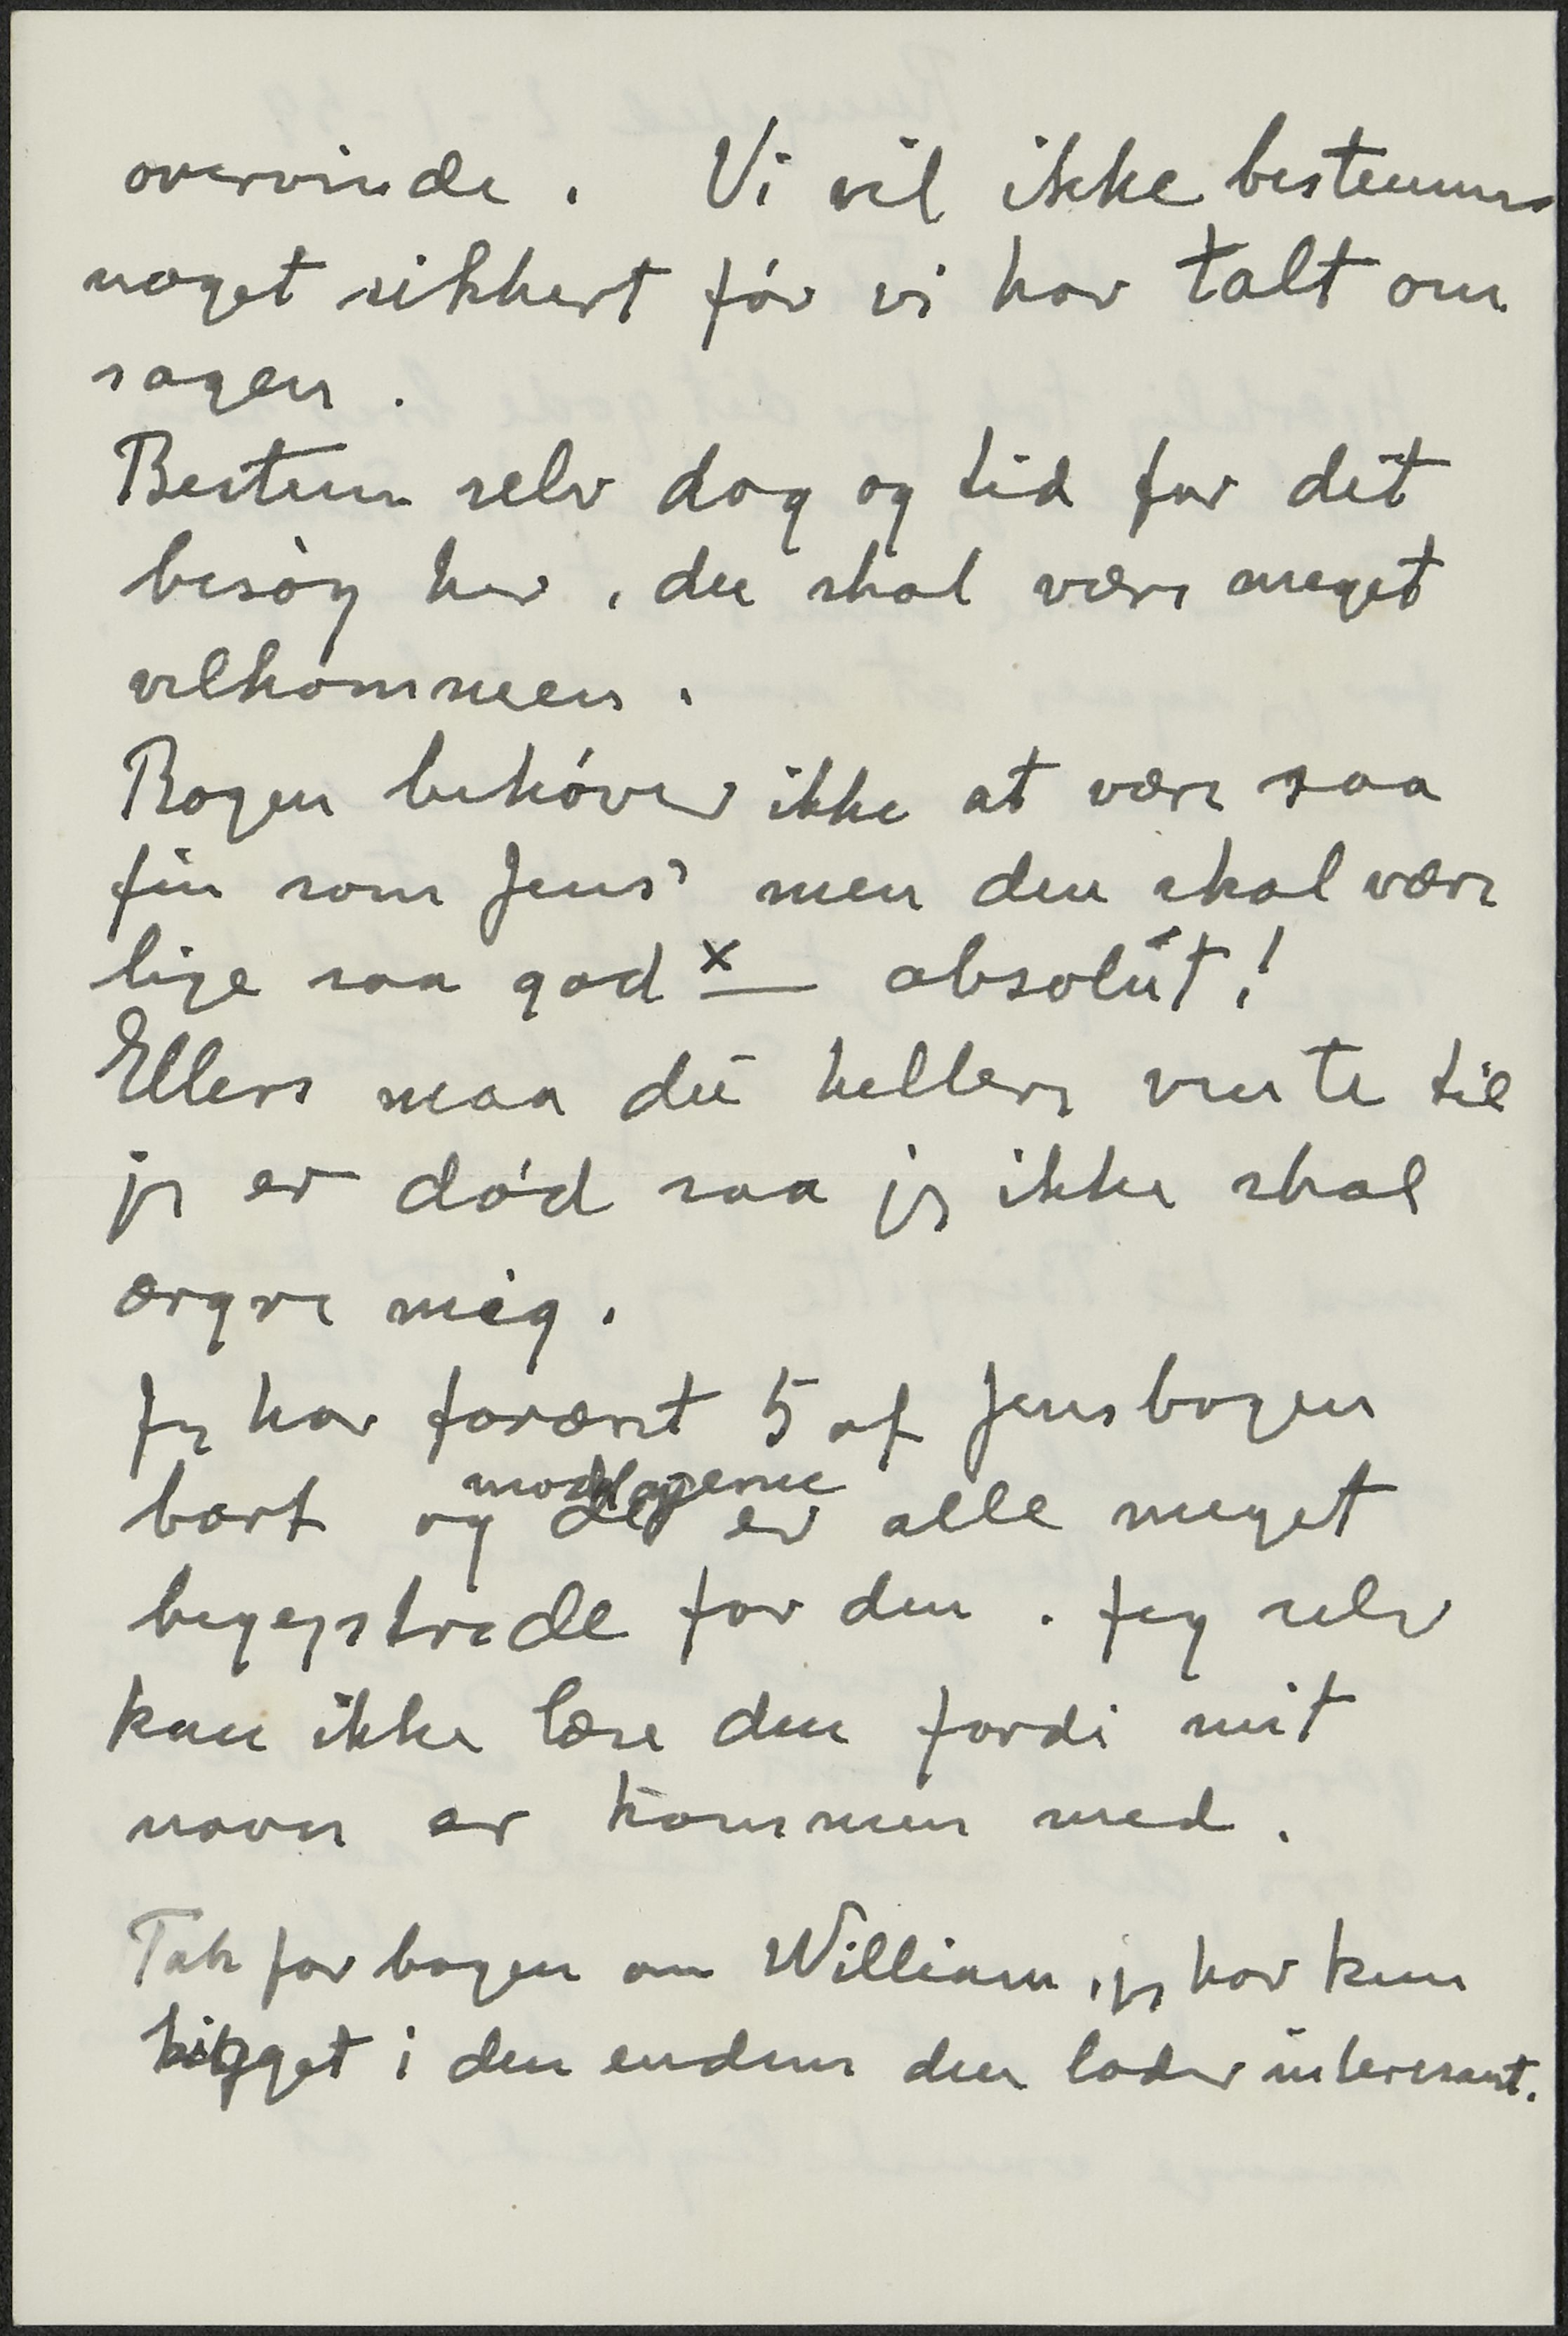 overvinde. Vi vil ikke bestemme
noget sikkert før vi har talt om
sagen.
Bestem selv dag og tid for dit
besøg her, du skal være meget
velkommen.
Bogen behøver ikke at være saa
fin som Jens' men den skal være
lige saa god x — absolut!
Ellers maa du hellere vente til
jeg er død saa jeg ikke skal
ærgre mig.
Jeg har foræret 5 af Jensbogen
bort og modtagerne er alle meget
begejstrede for den. Jeg selv
kan ikke læse den fordi mit
navn er kommen med.
Tak for bogen om William, jeg har kun
kigget i den endnu den lader interesant.